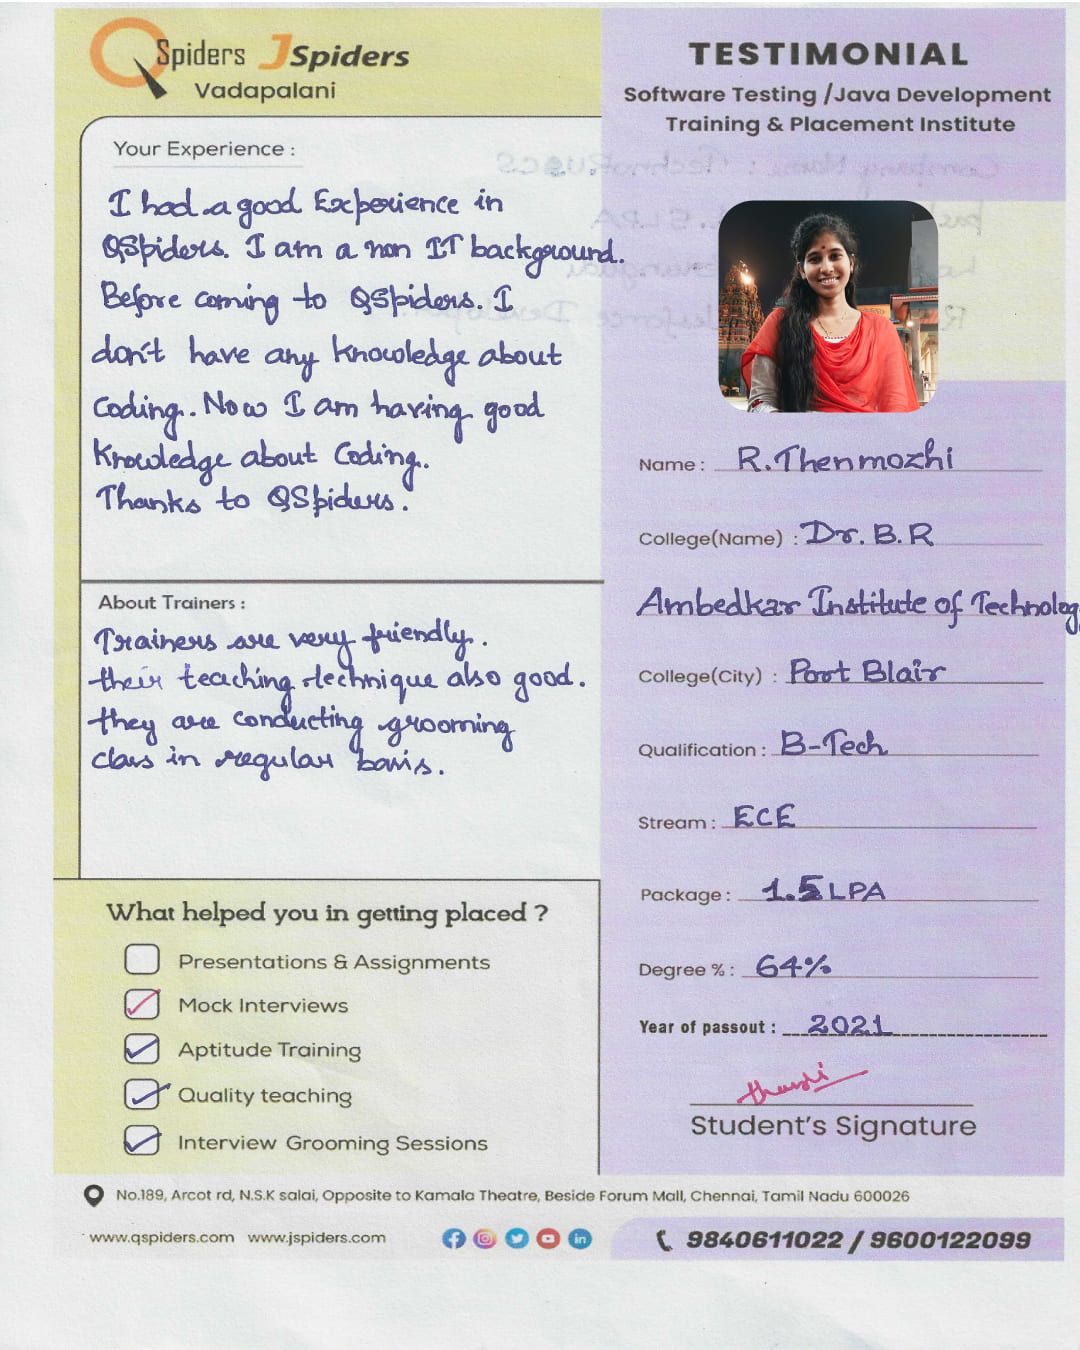 QSpiders JSpiders
Vadapalani
TESTIMONIAL
Software Testing /Java Development
Training & Placement Institute
Your Experience :
I had a good Experience in
QSpiders. I am a non IT background.
Before coming to QSpiders. I
don't have any knowledge about
Coding. Now I am having good
Knowledge about Coding.
Thanks to QSpiders.
About Trainers :
Trainers are very friendly.
their teaching technique also good.
they are conducting grooming
class in regular basis.
What helped you in getting placed ?
Presentations & Assignments
Mock Interviews
Aptitude Training
Quality teaching
Interview Grooming Sessions
Name : R.Thenmozhi
College(Name) : Dr. B.R
Ambedkar Institute of Technolog
College(City) : Port Blair
Qualification : B-Tech
Stream : ECE
Package : 1.5 LPA
Degree % : 64%
Year of passout : 2021
Student's Signature
No.189, Arcot rd, N.S.K salai, Opposite to Kamala Theatre, Beside Forum Mall, Chennai, Tamil Nadu 600026
www.qspiders.com www.jspiders.com
9840611022 / 9600122099